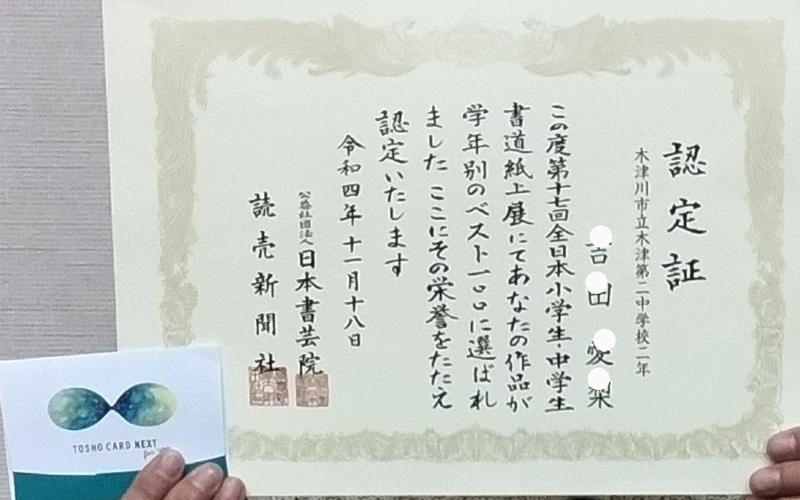 認定証
木津川市立木津第二中学校二年
この度第十七回全日本小学生・中学生
書道紙上展にてあなたの作品が
学年別のベスト一〇〇に選ばれ
ました ここにその栄誉をたたえ
認定いたします
令和四年十一月十八日
公益社団法人日本書芸院
読売新聞社
TOSHO CARD NEXT